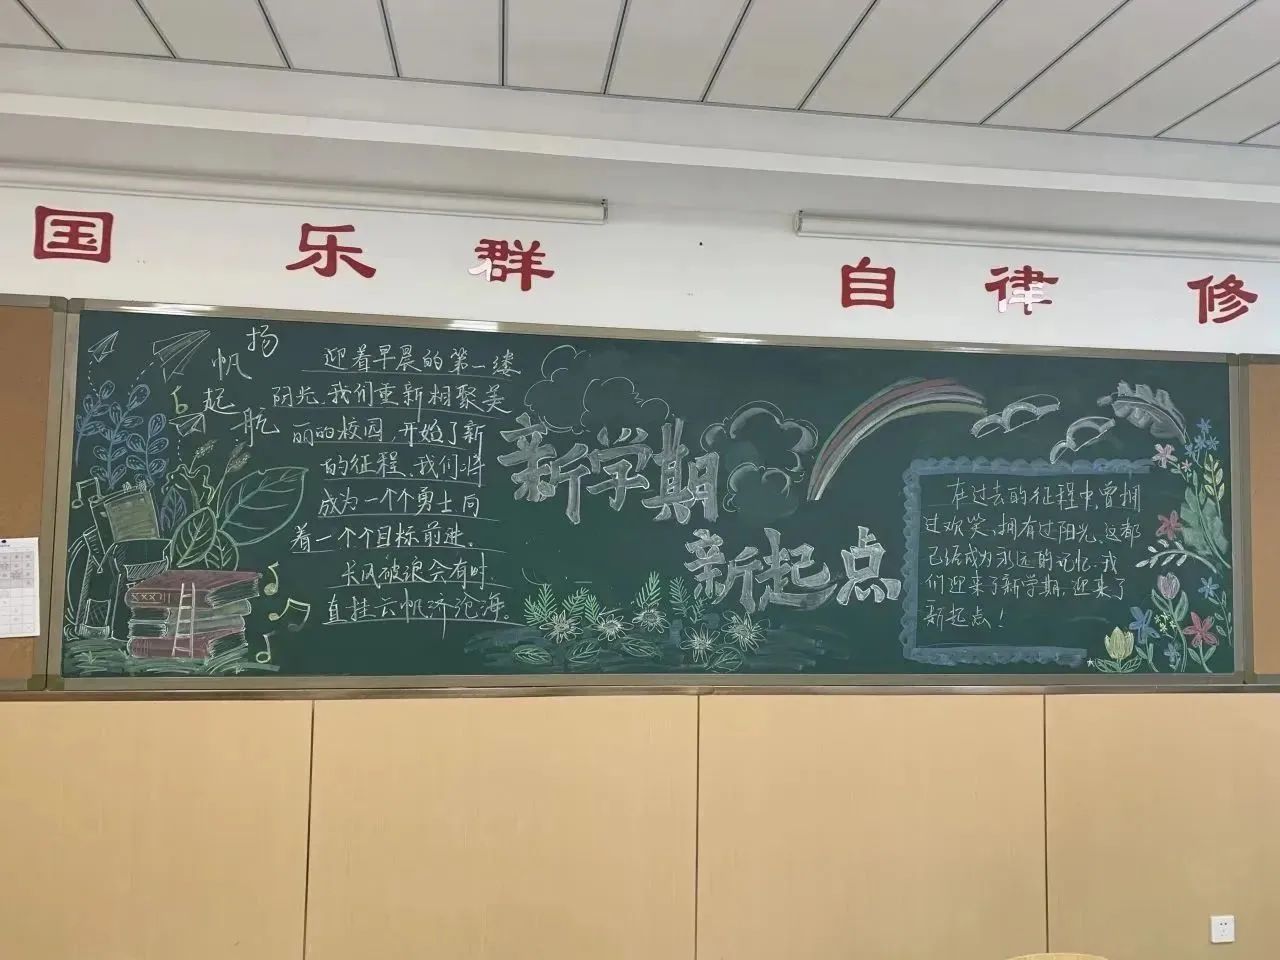 国 乐 群 自 律 修
扬
帆
起
航
迎着早晨的第一缕
阳光、我们重新相聚美
丽的校园，开始了新
的征程、我们将
成为一个个勇士，向
着一个个目标前进。
长风破浪会有时
直挂云帆济沧海。
新学期
新起点
在过去的征程中，曾拥
过欢笑、拥有过阳光、这都
已经成为永远的记忆. 我
们迎来了新学期，迎来了
新起点！